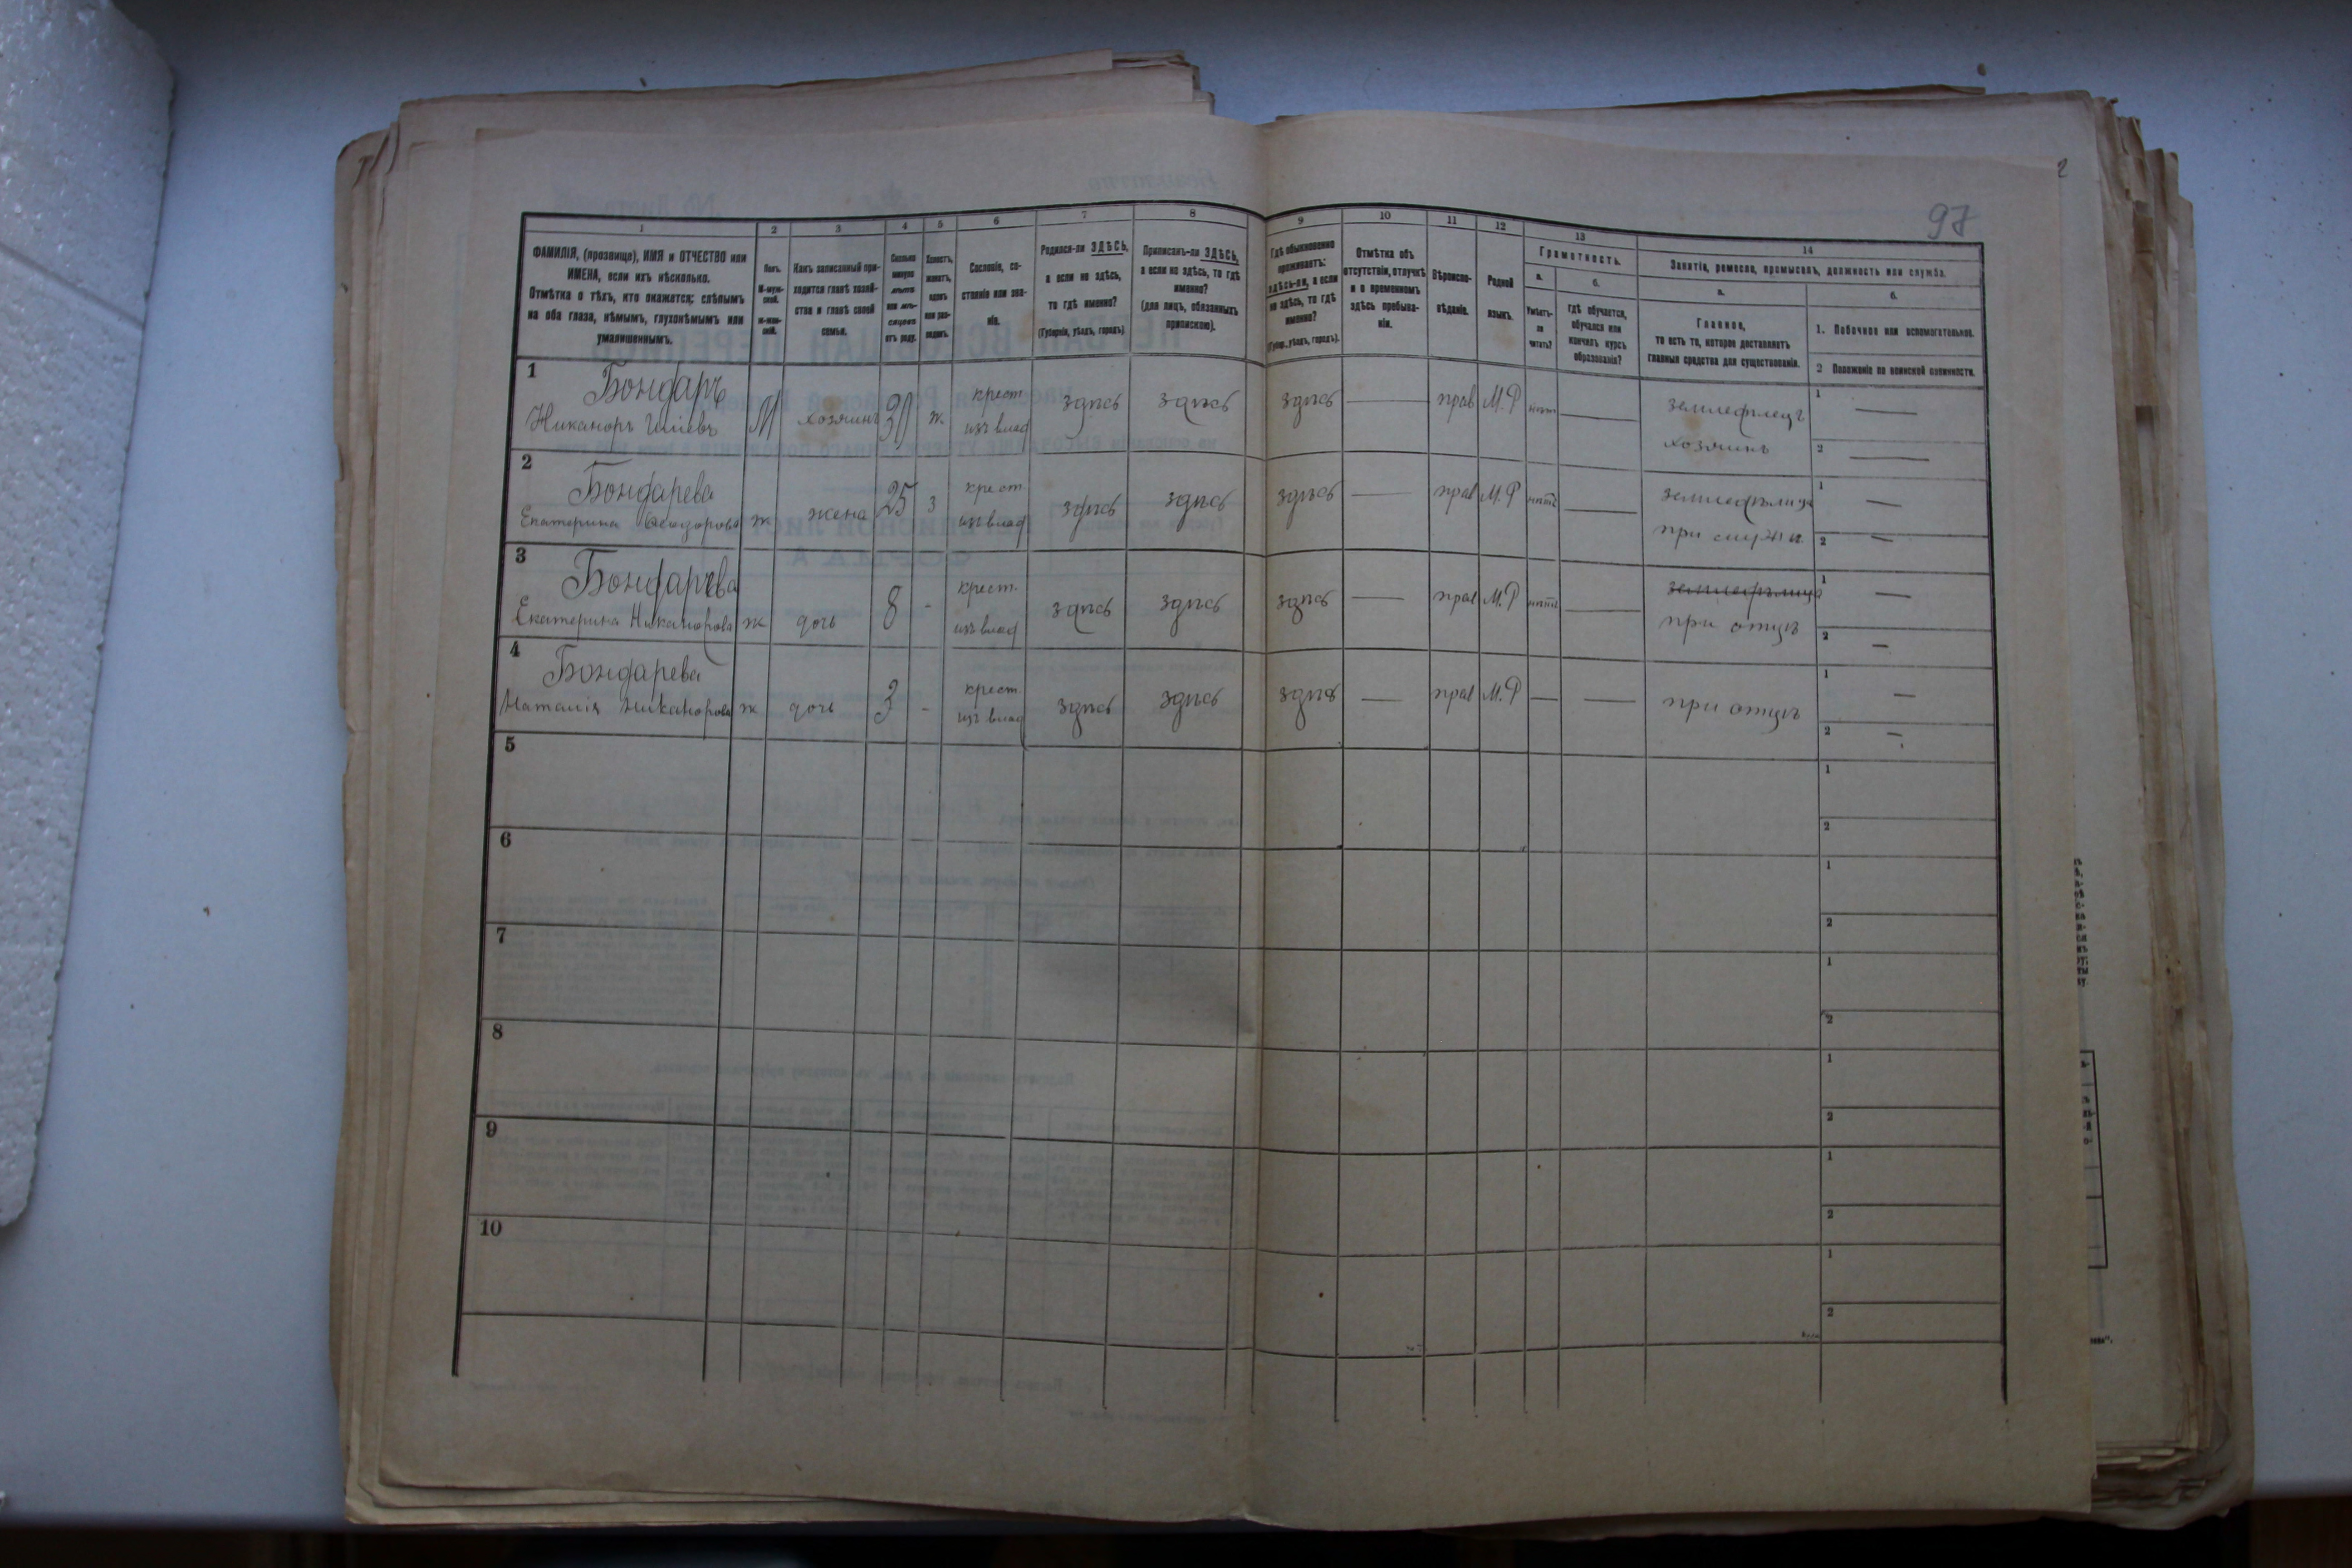 97
1 2 3 4 5 6 7 8 9 10 11 12 13 14
ФАМИЛІЯ, (прозвище), ИМЯ и ОТЧЕСТВО или
ИМЕНА, если ихъ нѣсколько.
Отмѣтка о тѣхъ, кто окажется: слѣпымъ
на оба глаза, нѣмымъ, глухонѣмымъ или
умалишеннымъ.
Полъ.
М-муж-
ской.
ж-жен-
скій.
Какъ записанный при-
ходится главѣ хозяй-
ства и главѣ своей
семьи.
Сколько
минуло
лѣтъ
или мѣ-
сяцевъ
отъ роду.
Холостъ,
женатъ,
вдовъ
или раз-
веденъ.
Сословіе, со-
стояніе или зва-
ніе.
Родился-ли ЗДѢСЬ,
а если не здѣсь,
то гдѣ именно?
(Губернія, уѣздъ, городъ).
Приписанъ-ли ЗДѢСЬ,
а если не здѣсь, то гдѣ
именно?
(для лицъ, обязанныхъ
припискою).
Гдѣ обыкновенно
проживаетъ:
здѣсь-ли, а если
не здѣсь, то гдѣ
именно?
(Губер., уѣздъ, городъ).
Отмѣтка объ
отсутствіи, отлучкѣ
и о временномъ
здѣсь пребыва-
ніи.
Вѣроиспо-
вѣданіе.
Родной
языкъ.
Грамотность.
а.
Умѣетъ-
ли
читать?
б.
гдѣ обучается,
обучался или
кончилъ курсъ
образованія?
Занятіе, ремесло, промыселъ, должность или служба.
а.
Главное,
то есть то, которое доставляетъ
главныя средства для существованія.
б.
1. Побочное или вспомогательное.
2 Положеніе по воинской повинности.
1 Бондаръ крест. 1
Никаноръ М хозяинъ 30 ж. изъ влад здѣсь здѣсь здѣсь — прав М.Р нѣтъ — земледѣлецъ
хозяинъ 2
2 Бондарева крест. 1
Екатерина Ѳеодорова ж жена 25 з изъ влад здѣсь здѣсь здѣсь — прав М.Р нѣтъ — земледѣлица
при мужѣ 2
3 Бондарева крест. земледѣлица 1
Екатерина Никанорова ж дочь 8 - изъ влад здѣсь здѣсь здѣсь — прав М.Р нѣтъ — при отцѣ 2
4 Бондарева крест. 1
Наталія Никанорова ж дочь 3 - изъ влад здѣсь здѣсь здѣсь — прав М.Р — — при отцѣ 2
5 1
2
6 1
2
7 1
2
8 1
2
9 1
2
10 1
2